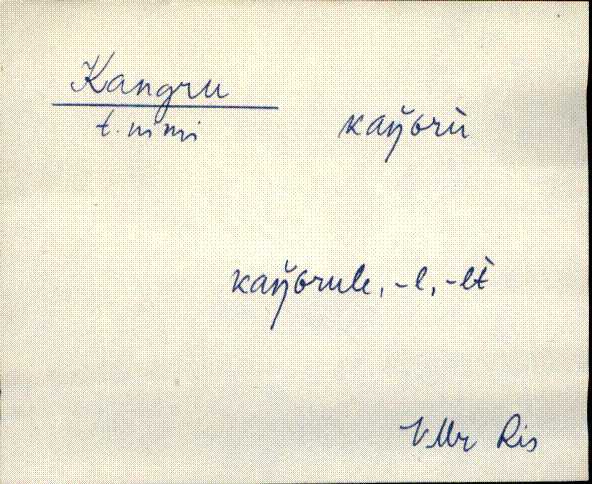 Kangru
t. nimi kaŋ̆ᴦrù
kaŋ̆ᴦrule, -l, -lt̀
VMr Ris